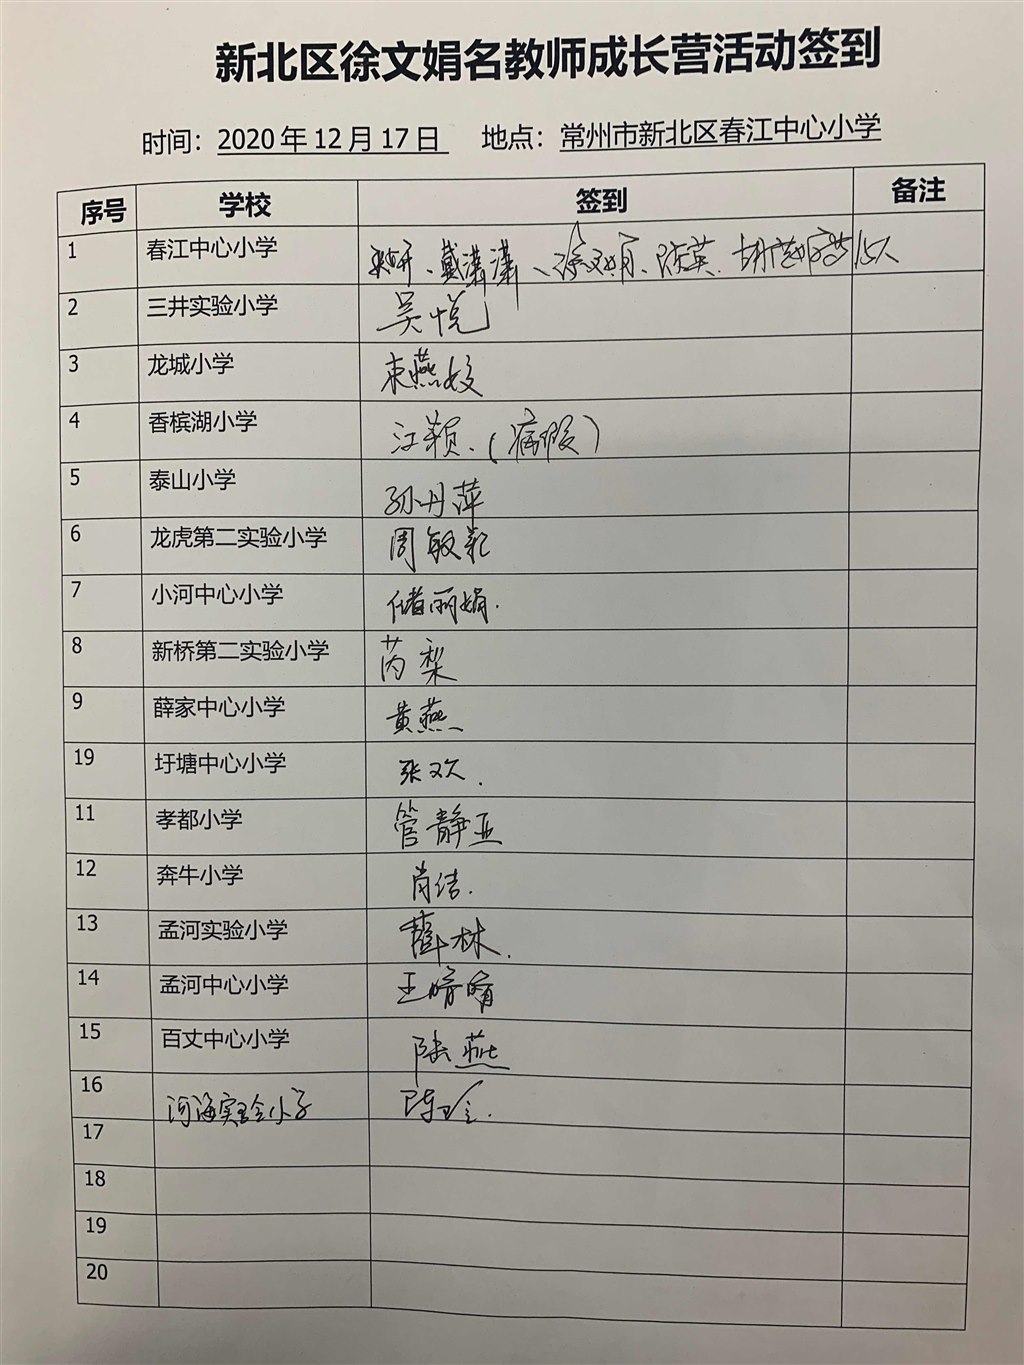 新北区徐文娟名教师成长营活动签到
时间：2020年12月17日 地点：常州市新北区春江中心小学
序号 学校 签到 备注
1 春江中心小学 戴潇潇、徐文娟、陆英、
2 三井实验小学 吴悦
3 龙城小学 束燕姣
4 香槟湖小学 江颖.（病假）
5 泰山小学 孙丹萍
6 龙虎第二实验小学 周敏
7 小河中心小学 储丽娟.
8 新桥第二实验小学 芮梨
9 薛家中心小学 黄燕
19 圩塘中心小学 张欢.
11 孝都小学 管静亚
12 奔牛小学 肖洁.
13 孟河实验小学 林.
14 孟河中心小学 王晴晴
15 百丈中心小学 陆燕
16 河海实验小学 陈玲.
17
18
19
20